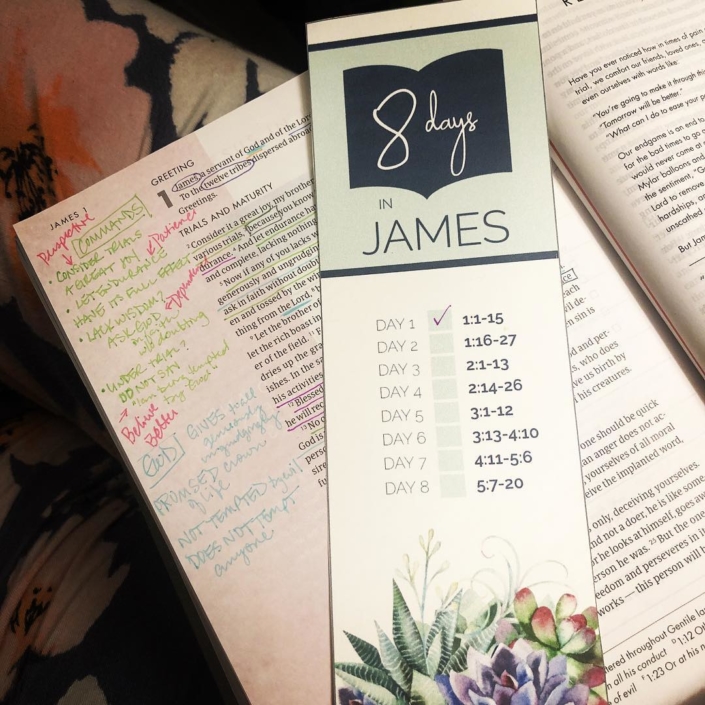 8 days
IN
JAMES
DAY 1 ✓ 1:1-15
DAY 2 1:16-27
DAY 3 2:1-13
DAY 4 2:14-26
DAY 5 3:1-12
DAY 6 3:13-4:10
DAY 7 4:11-5:6
DAY 8 5:7-20
JAMES 1
Perspective
COMMANDS
Patience
• CONSIDER TRIALS
A GREAT JOY
• LET ENDURANCE
HAVE ITS FULL EFFECT
• LACK WISDOM?
ASK GOD
doubting
• UNDER TRIAL?
DO NOT SAY
Believe
Better
GOD GIVES to all
generously
ungrudgingly
PROMISED crown
of life
NOT TEMPTED by evil
DOES NOT TEMPT
anyone
GREETING
1 James, a servant of God and of the Lord
To the twelve tribes dispersed abroad
Greetings.
TRIALS AND MATURITY
2 Consider it a great joy, my brother
various trials, 3 because you know
durance. 4 And let endurance ha
and complete, lacking nothing
5 Now if any of you lacks
generously and ungrudgin
ask in faith without doub
en and tossed by the wi
thing from the Lord,
9 Let the brother o
let the rich boast in
er of the field.
dries up the gra
ishes. In the sa
his activities
12 Blessed
he will rec
13 No
God is
Have you ever noticed how in times of pain
trial, we comfort our friends, loved ones,
even ourselves with words like:
"You're going to make it through this
"Tomorrow will be better."
"What can I do to ease your
Our endgame is an end to
for the bad times to go
would never come at
Mylar balloons and
the sentiment,
Lord to remove
hardships, an
unscathed
But Jam
each
n sin is
and per-
s, who does
ve us birth by
his creatures.
one should be quick
an anger does not ac-
yourselves of all moral
eive the implanted word,
only, deceiving yourselves.
nd not a doer, he is like some
he looks at himself, goes aw
erson he was. 25 But the one
eedom and perseveres in i
works — this person will b
ered throughout Gentile la
n all his conduct 1:12 Oth
of evil 1:23 Or at his n